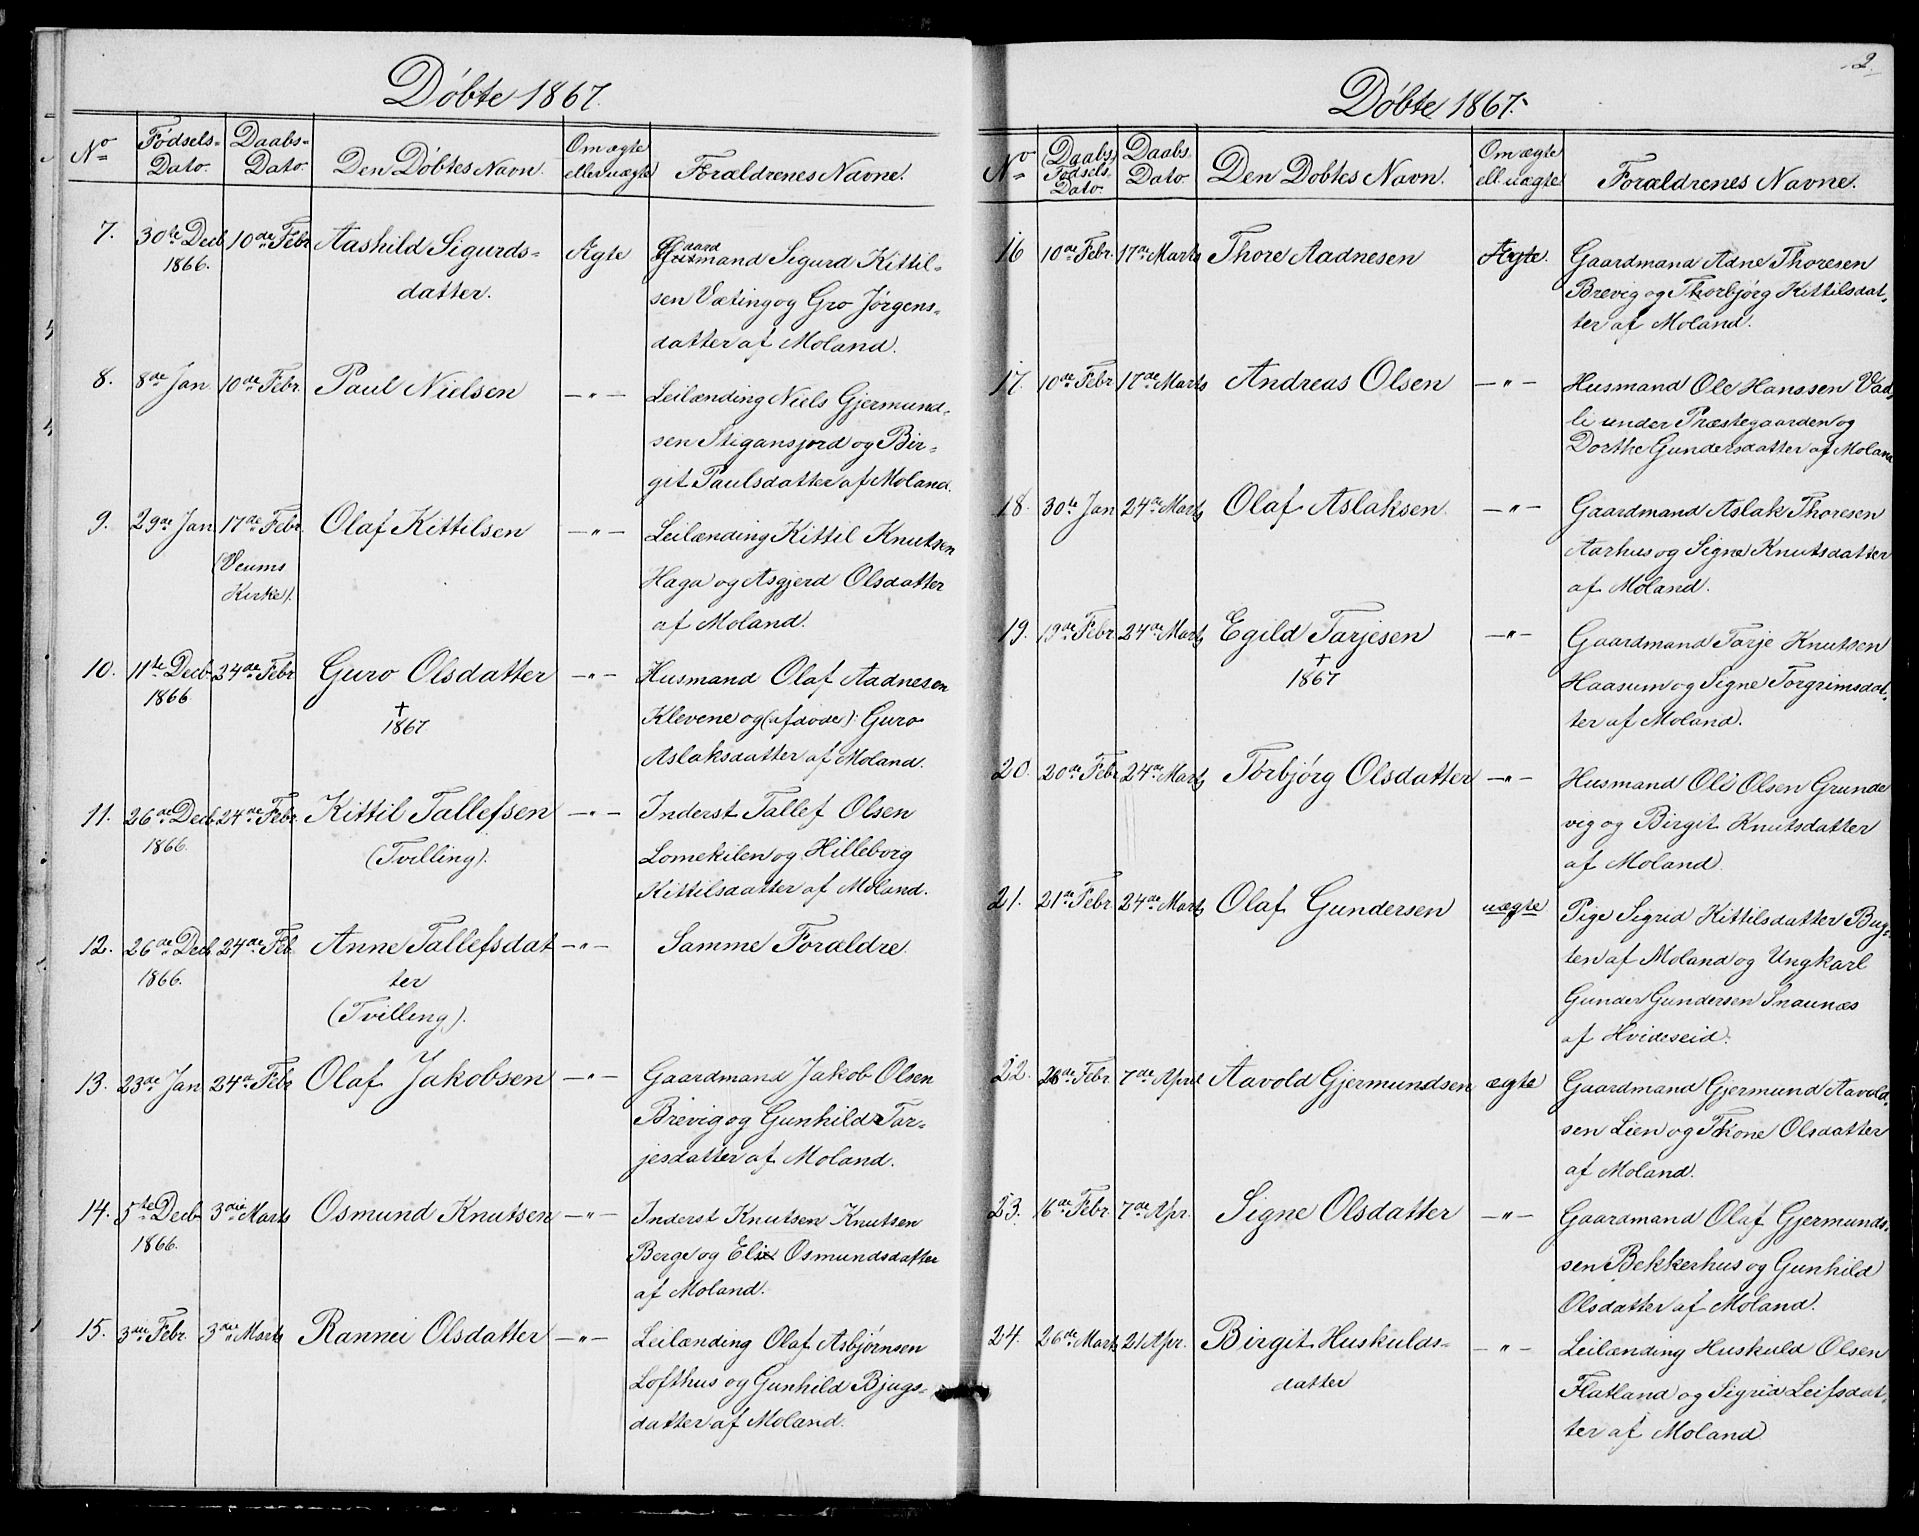 Döbte 1867.
No Fødsels- Dato. Daabs- Dato. Den Döbtes Navn. Om ægte eller uægte Forældrenes Navne.
7. 30te Decb 10de Febr Aashild Sigurds- Ægte Gaardmand Sigurd Kittil-
1866. datter. sen Væting og Gro Jørgens-
datter af Moland.
8. 8de Jan 10de Febr. Paul Nielsen —"— Leilænding Niels Gjermund-
sen Stigansjord og Bir-
git Paulsdatter af Moland.
9. 29de Jan 17de Febr. Olaf Kittilsen —"— Leilænding Kittil Knutsen
(Veums Haga og Asgjerd Olsdatter
Kirke). af Moland.
10. 11te Decb. 24de Febr Guro Olsdatter —"— Husmand Olaf Aadnesen
1866 † Klevene og (afdøde): Guro
1867 Aslaksdatter af Moland.
11. 26de Decb 24de Febr. Kittil Tallefsen —"— Inderst Tallef Olsen
1866. (Tvilling). Lomekilen og Hilleborg
Kittilsdatter af Moland.
12. 26de Decb 24de Feb. Anne Tallefsdat —"— Samme Forældre.
1866. ter
(Tvilling).
13. 23de Jan 24de Febr Olaf Jakobsen —"— Gaardmand Jakob Olsen
Brevig og Gunhild Tar-
jesdatter af Moland.
14. 5te Decb 3die Marts Osmund Knutsen —"— Inderst Knutsen Knutsen
1866. Berge og Osmundsdatter
af Moland.
15. 3die Febr. 3die Marts Rannei Olsdatter —"— Leilænding Olaf Asbjørnsen
Lofthus og Gunhild Bjugs-
datter af Moland.
2.
Döbte 1867.
No Daabs Fødsels- Dato. Daabs Dato. Den Döbtes Navn. Om ægte ell. uægte Forældrenes Navne.
16 10de Febr. 17de Marts Thore Aadnesen Ægte. Gaardmand Adne Thoresen
Brevig og Thorbjørg Kittilsdat-
ter af Moland.
17. 10de Febr 17de Marts Andreas Olsen —"— Husmand Ole Hanssen Vad-
li under Præstegaarden og
Dorthe Gundersdatter af Moland
18. 30te Jan 24de Marts Olaf Aslaksen —"— Gaardmand Aslak Thoresen
Aarhus og Signe Knutsdatter
af Moland.
19. 19de Febr. 24de Marts Egild Tarjesen —"— Gaardmand Tarje Knutsen
† Haasum og Signe Torgrimsdat-
1867 ter af Moland.
20. 20de Febr 24de Marts Torbjørg Olsdatter —"— Husmand Ole Olsen Grunde
vig og Birgit Knutsdatter
af Moland.
21. 21de Febr. 24de Marts Olaf Gundersen uægte Pige Sigrid Kittilsdatter Bug-
ten af Moland og Ungkarl
Gunder Gundersen Snaunæs
af Hvideseid.
22. Febr. 7de April Aavold Gjermundsen ægte Gaardmand Gjermund Aavold-
sen Lien og Thone Olsdatter
af Moland.
23. 16de Febr. 7de Apr. Signe Olsdatter —"— Gaardmand Olaf Gjermunds-
sen Bekkerhus og Gunhild
Olsdatter af Moland.
24. 26de Marts 21 Apr. Birgit Huskulds- —"— Leilænding Huskuld Olsen
datter Flatland og Sigrid Leifsdat-
ter af Moland